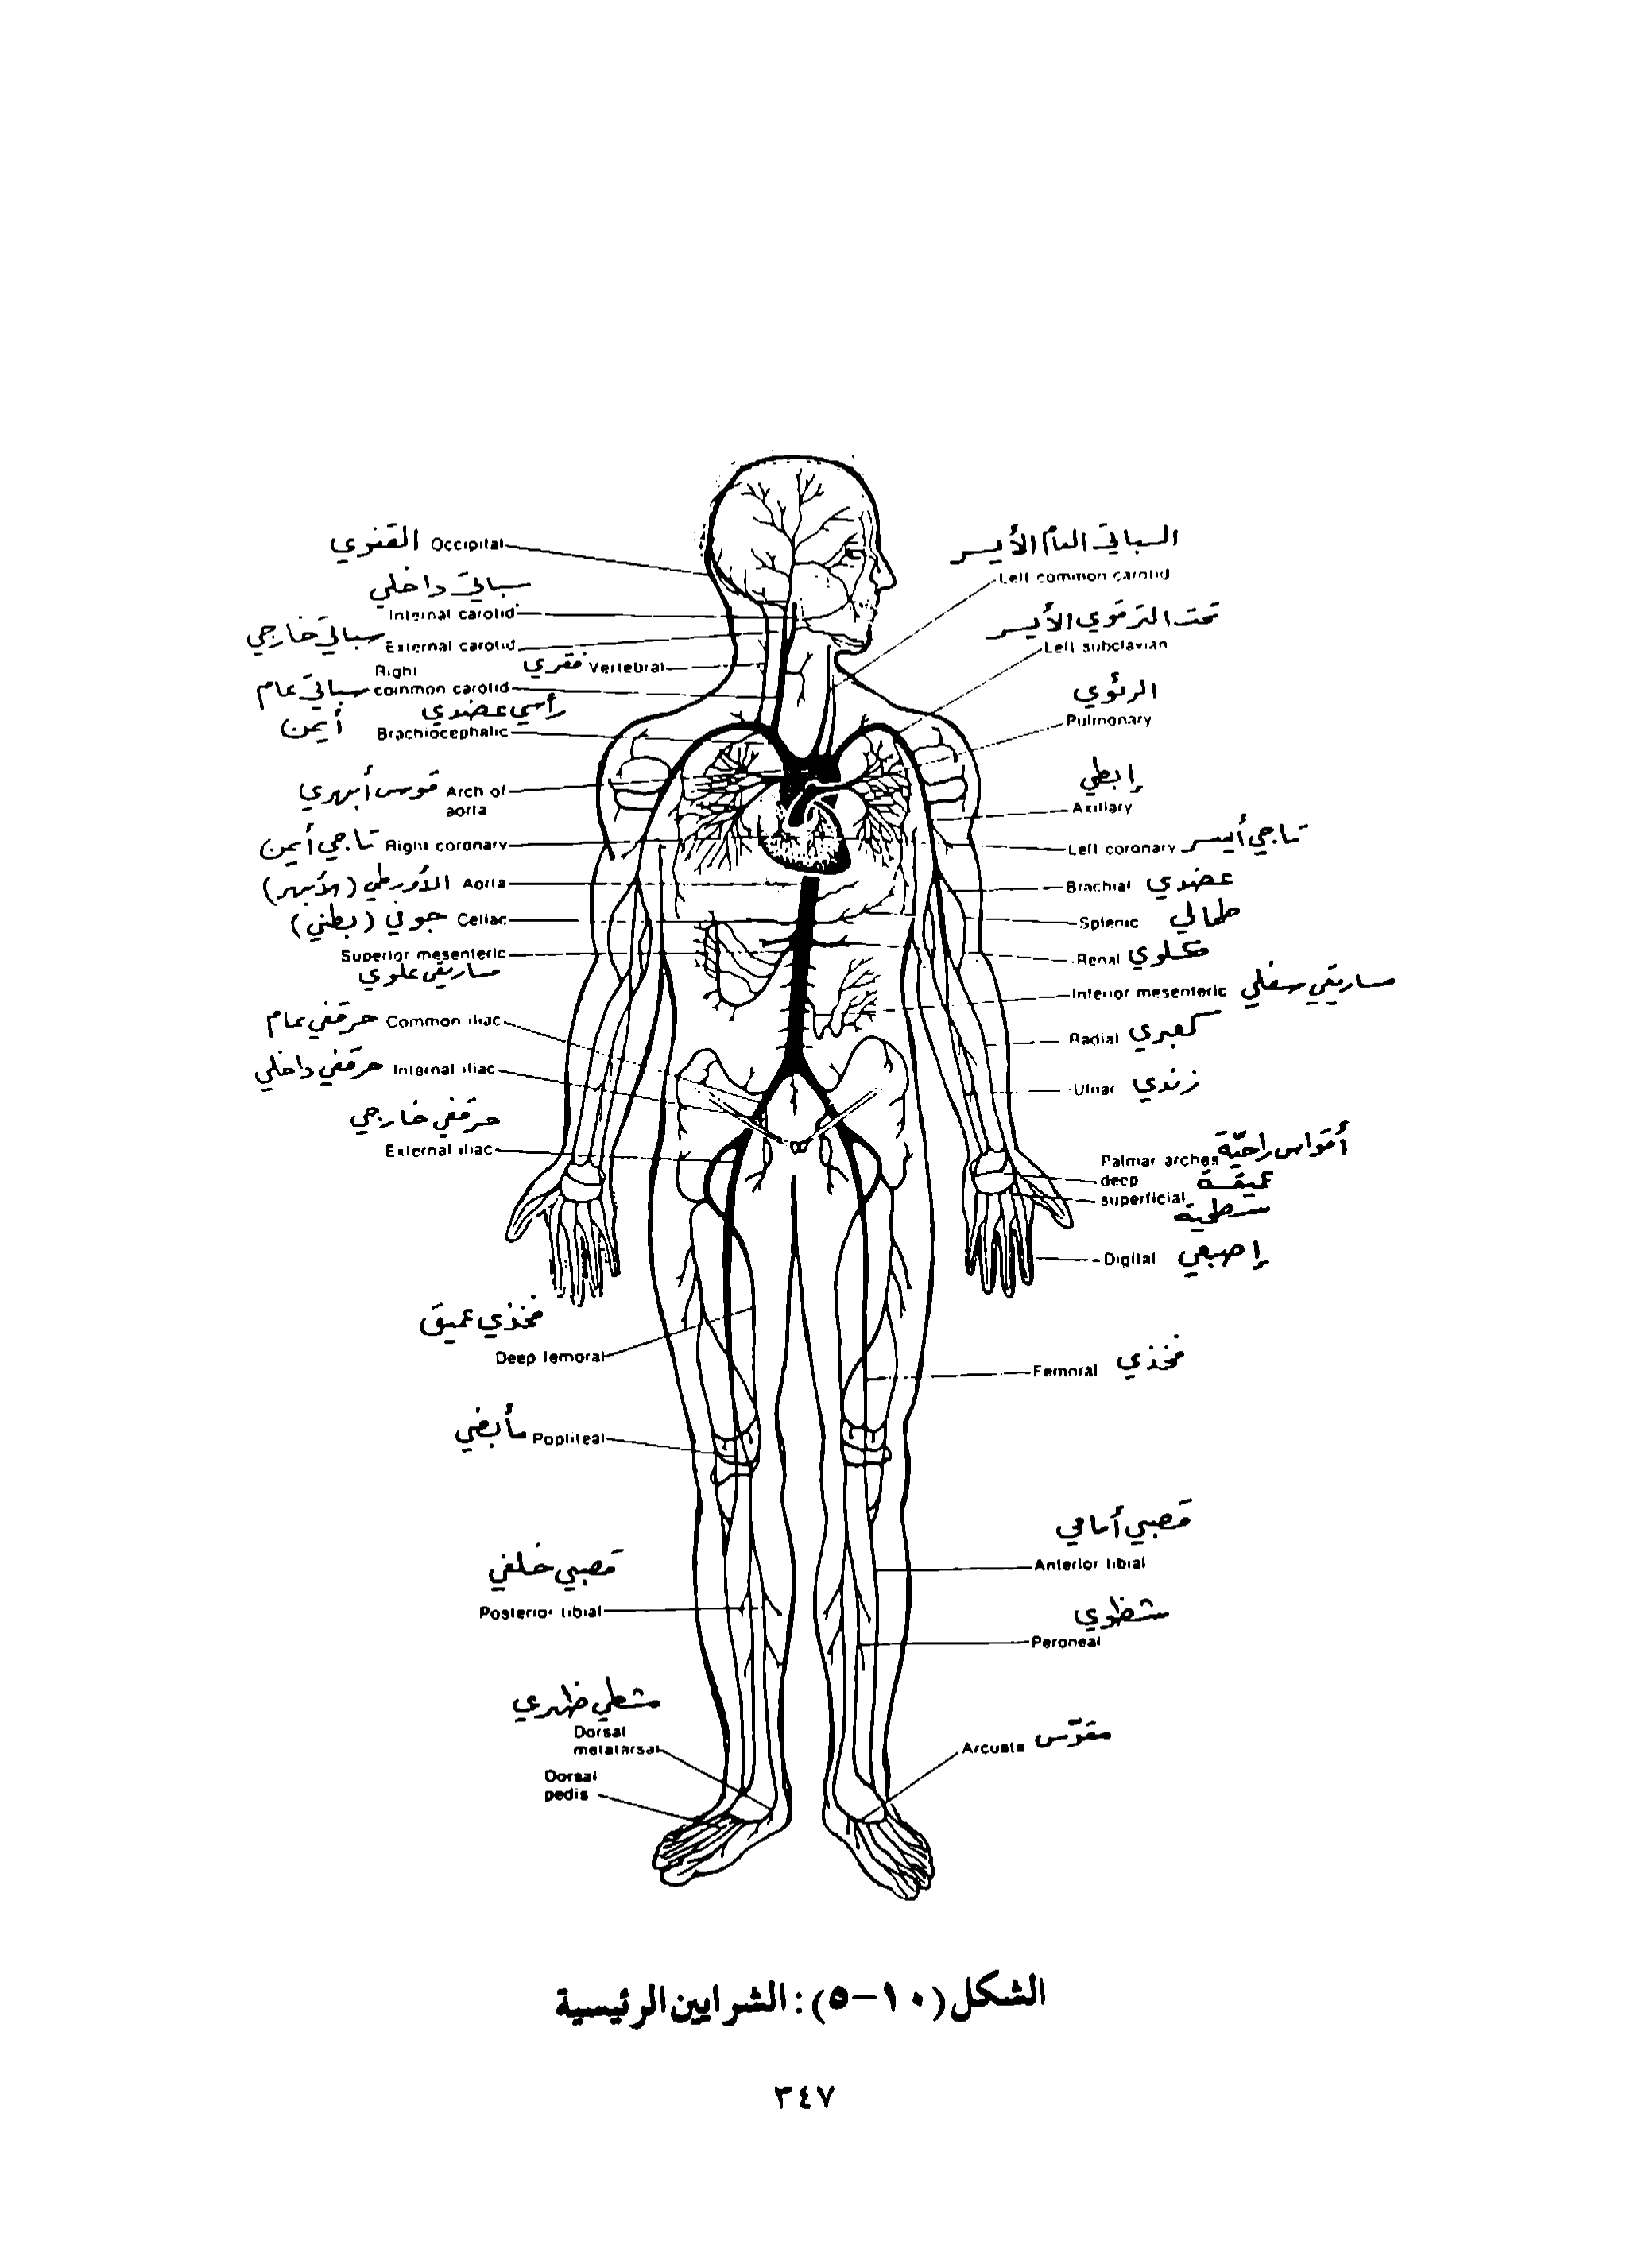 القفوي Occipital
سباتي داخلي
Internal carotid
سباتي خارجي External carotid
فقري Vertebral
Right
سباتي عام common carotid
أيمن
رأسي عضدي
Brachiocephalic
قوس أبهري Arch of
aorta
تاجي أيمن Right coronary
الأورطي (الأبهر) Aorta
جوفي (بطني) Celiac
Superior mesenteric
مساريقي علوي
حرقفي عام Common iliac
حرقفي داخلي Internal iliac
حرقفي خارجي
External iliac
فخذي عميق
Deep femoral
مأبضي Popliteal
قصبي خلفي
Posterior tibial
مشطي ظهري
Dorsal
metatarsal
Dorsal
pedis
السباتي العام الأيسر
Left common carotid
تحت الترقوي الأيسر
Left subclavian
الرئوي
Pulmonary
إبطي
Axillary
Left coronary تاجي أيسر
Brachial عضدي
Splenic طحالي
Renal كلوي
Inferior mesenteric مساريقي سفلي
Radial كعبري
Ulnar زندي
Palmar arches أقواس راحيّة
deep عميقة
superficial سطحية
Digital إصبعي
Femoral فخذي
قصبي أمامي
Anterior tibial
شظوي
Peroneal
Arcuate مقوّس
الشكل (١٠-٥): الشرايين الرئيسية
٣٤٧